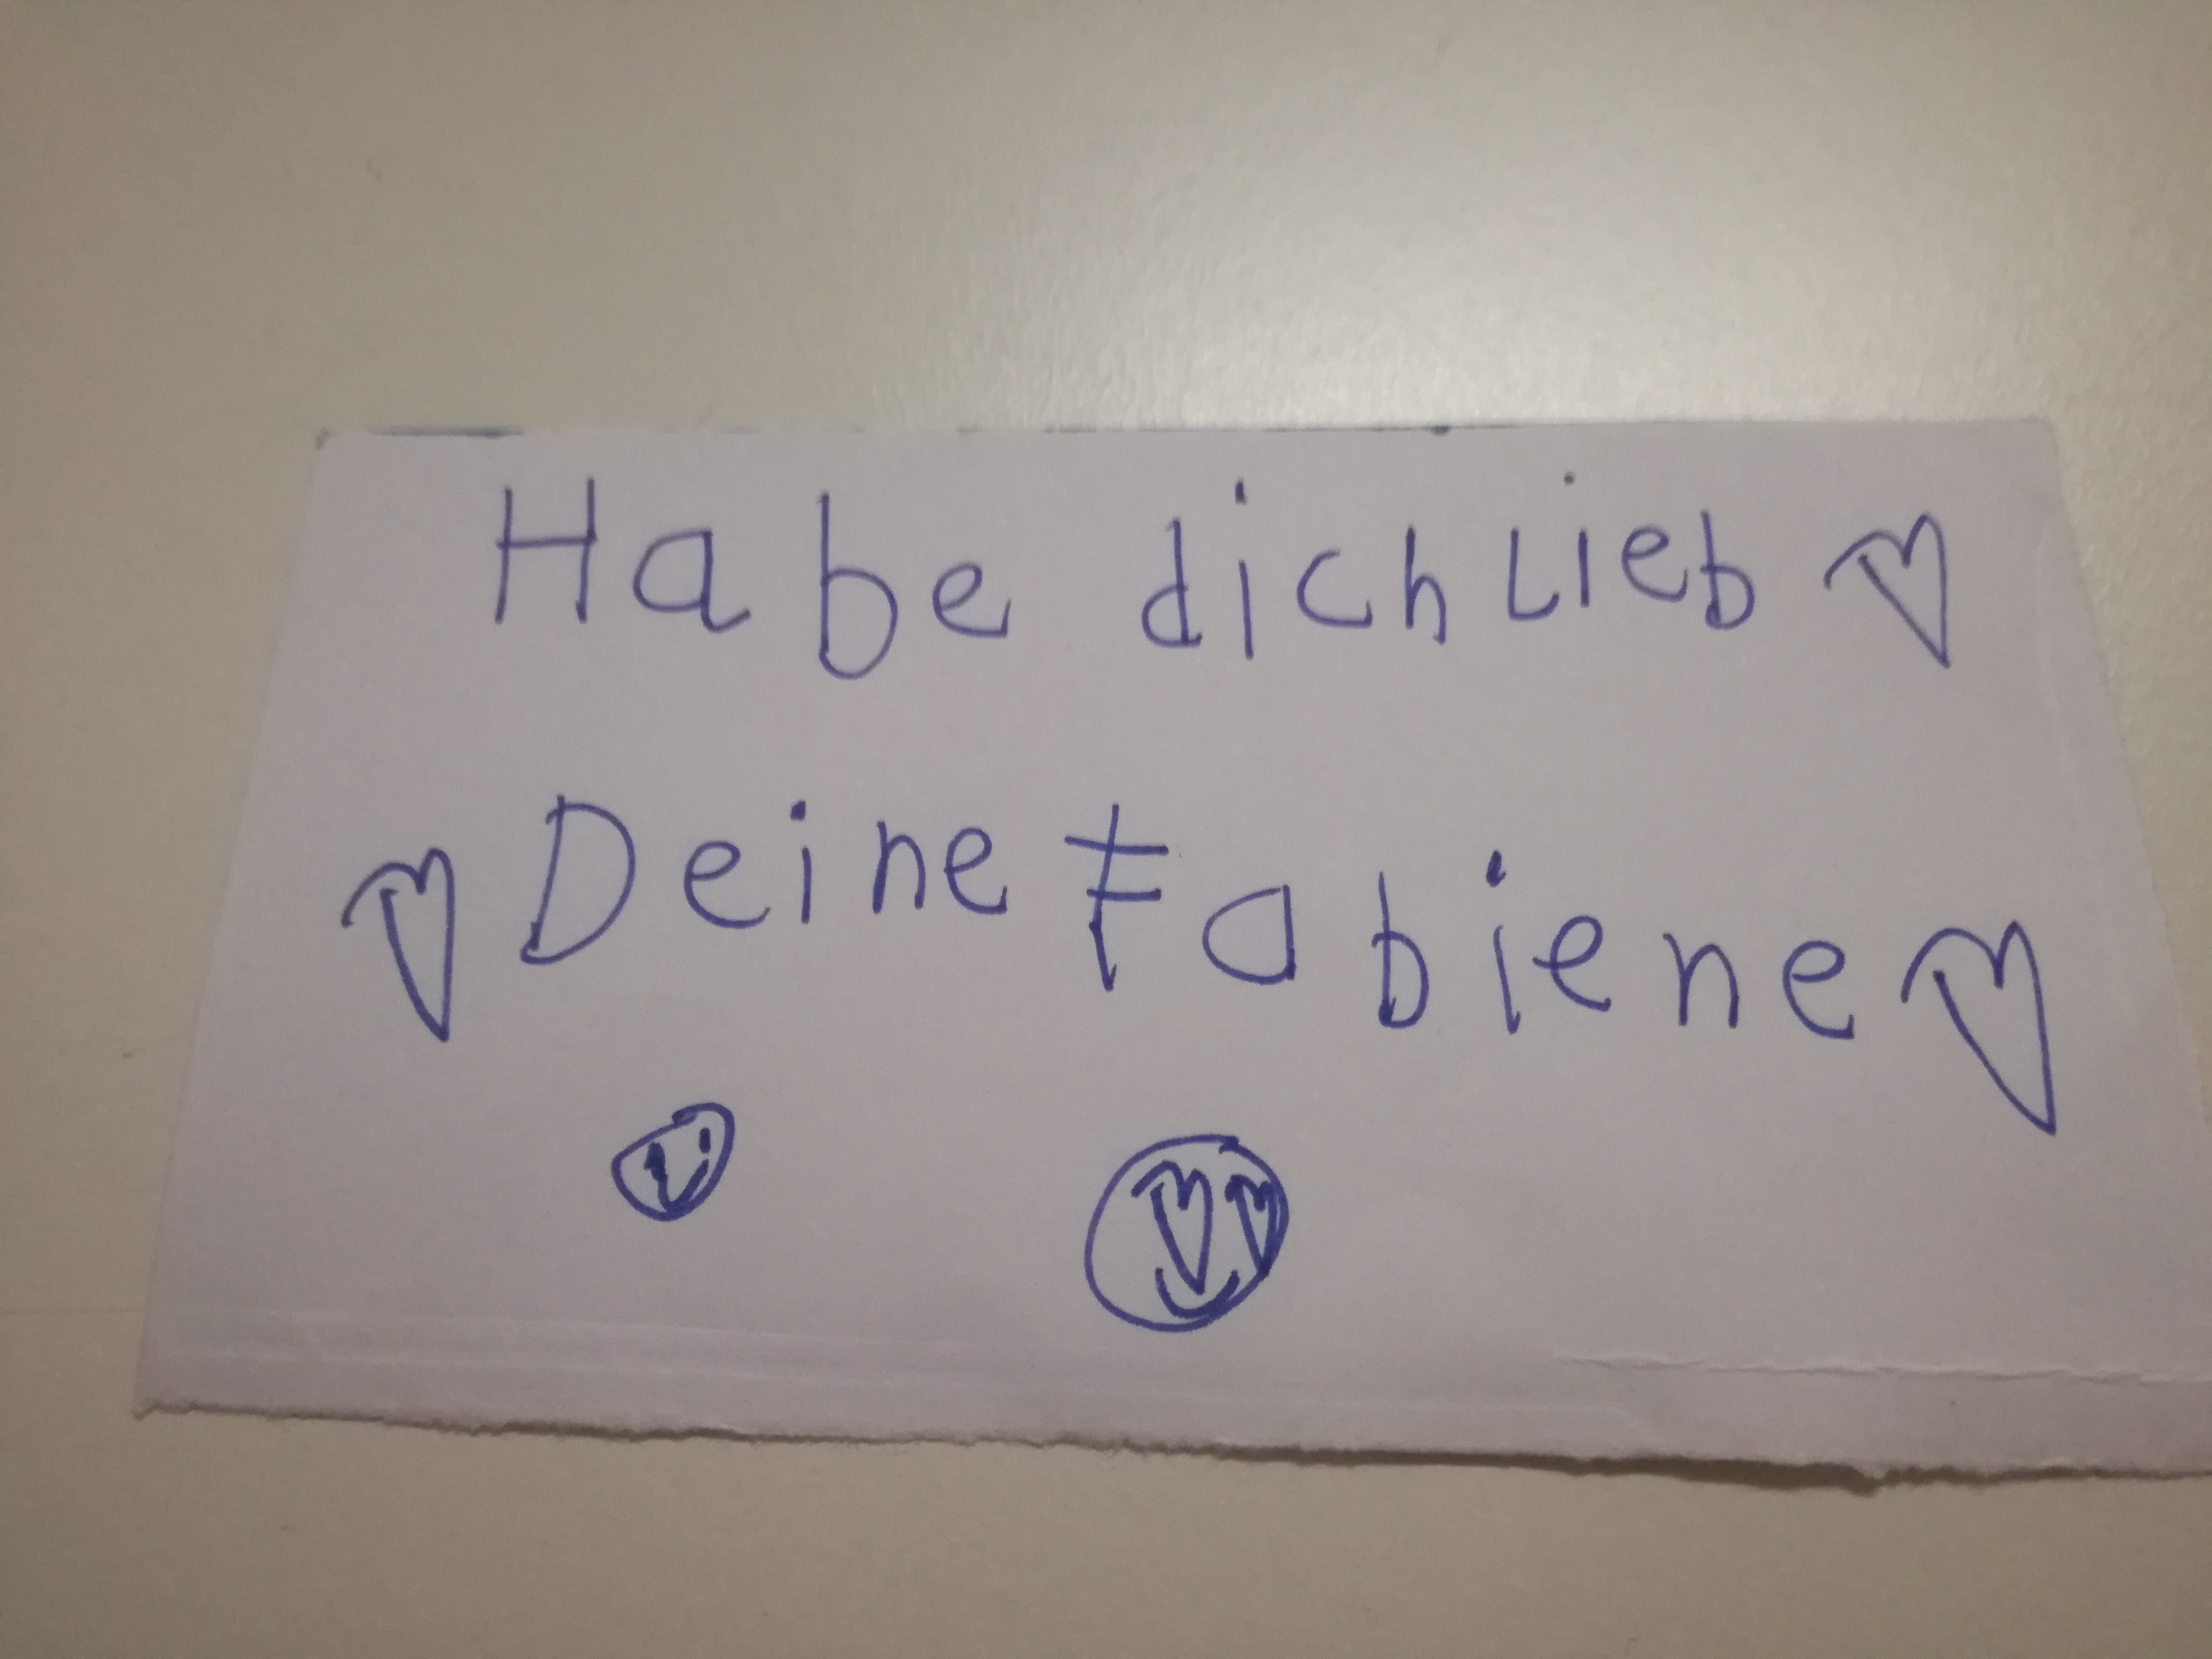 Habe dich Lieb ♡
♡ Deine Fabiene ♡